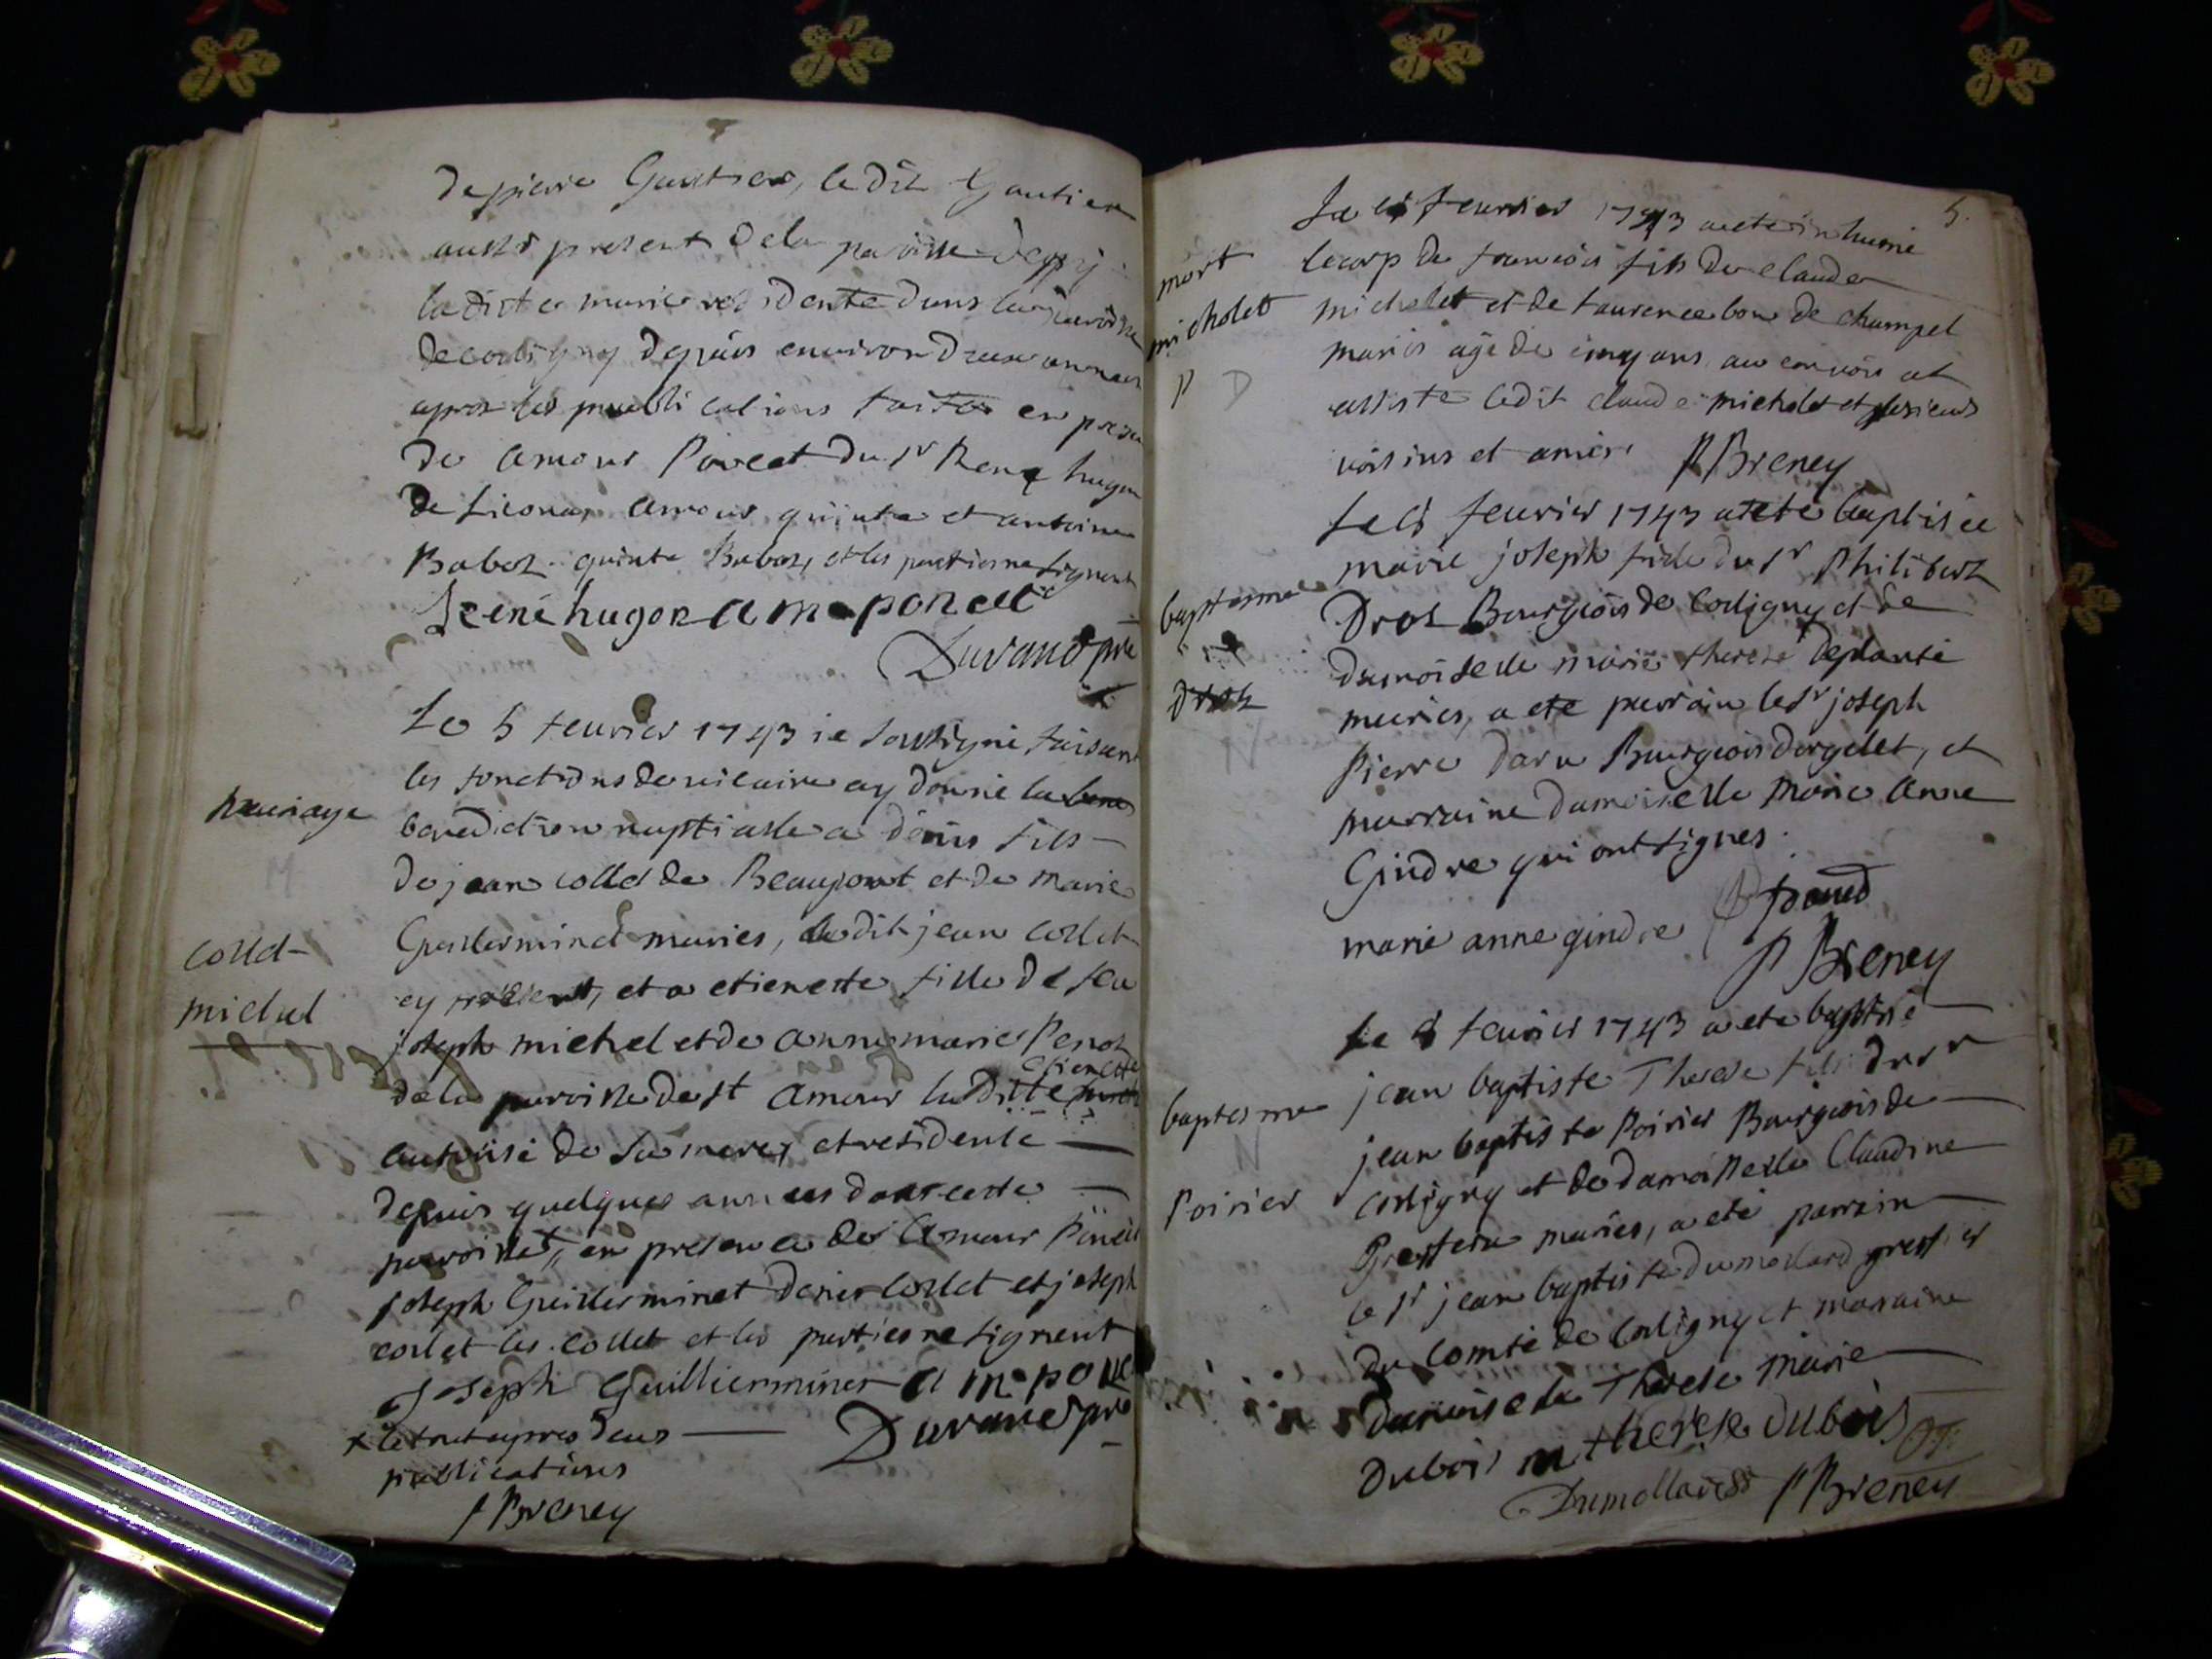 de pierre Gautier, ledit Gautier
aussi present dela paroisse
laditte marie residente dans la paroisse
decoligny depuis environ deux annees
apres les publications faittes en prese
de amour Poncet du sr Rene hugon
amour quinte et antoine
Baboz quinte Baboz, et les parties ne signent
René hugon a m poncet
Durand pre
Le 5 feurier 1743 ie soussigné faisant
les fonctions de vicaire ay donné la bene
mariage
benediction nuptialle a denis fils
de jean collet de Beaupont et de marie
Collet
Guillerminet maries, ledit jean collet
michel
cy present, et a etienette fille de feu
joseph michel et de anne marie Penoz
etienette
dela paroisse de st amour laditte
autorisé de sa mere, et residente
depuis quelques annees dans cette
paroisse x, en presence de amour Poncet
joseph Guillerminet denis collet et joseph
collet les collet et les parties ne signent
Joseph Guillierminet a m ponc
Durand pre
x le tout apres deux
publications
P Breney
5.
Le feurier 1743 a eté inhumé
mort
lecorp de francois fils de claude
micholet
micholet et de laurence bon de champel
P D
mariés agé de cinq ans au convois at
assisté ledit claude micholet et plusieurs
voisins et amis. P Breney
Le feurier 1743 a eté baptisée
marie joseph fille du sr Philibert
baptesme
Droz Bourgeois de Coligny et de
damoiselle marie therese deplante
Droz
maries, a eté parrain le sr joseph
Pierre daru Bourgeois dorgelet, et
marraine damoiselle marie anne
Gindre qui ont signes.
marie anne gindre
P Breney
Le feurier 1743 a eté baptisé
baptesme
jean baptiste Therese fils du sr
jean baptiste Poirier Bourgeois de
Poirier
coligny et de damoiselle Claudine
maries, a eté parrain
le sr jean baptiste dumollard greffier
du comté de coligny et maraine
damoiselle Therese marie
Dubois m therese dubois
Dumollard P Breney